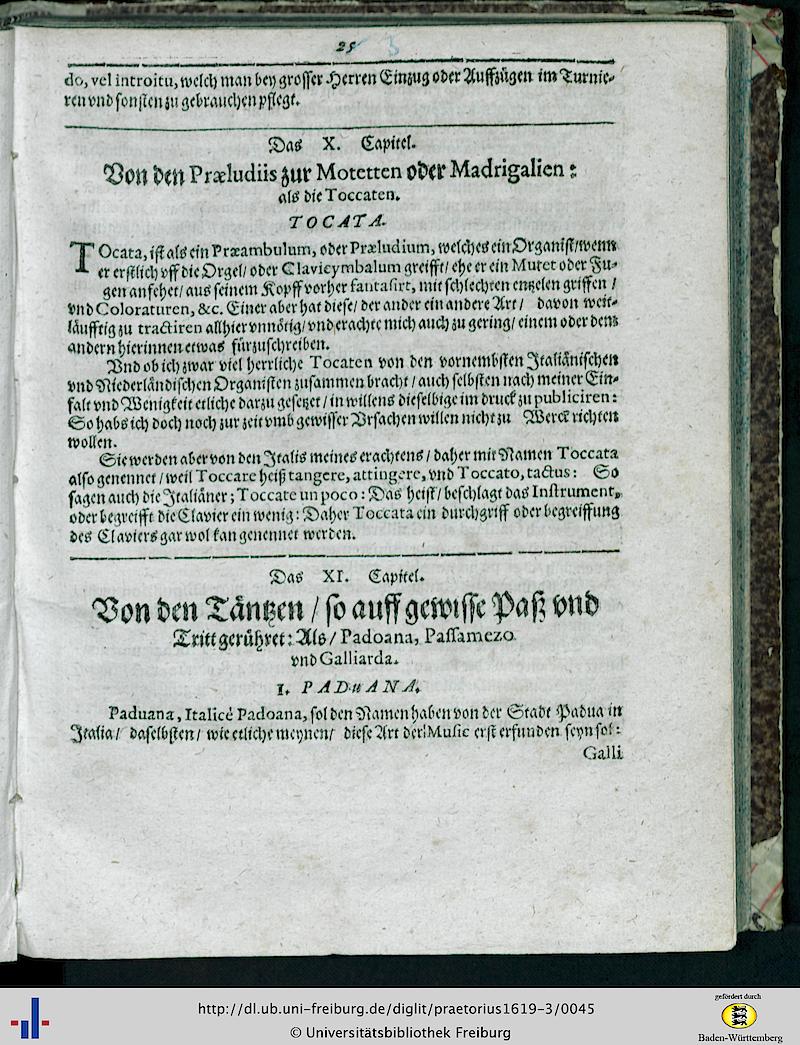 25 3
do, vel introitu, welch man bey grosser Herren Einzug oder Auffzügen im Turnie-
ren vnd sonsten zu gebrauchen pflegt.
Das X. Capitel.
Von den Præludiis zur Motetten oder Madrigalien:
als die Toccaten.
TOCATA.
TOcata, ist als ein Præambulum, oder Præludium, welches ein Organist/wenn
er erstlich vff die Orgel/ oder Clavicymbalum greifft/ ehe er ein Mutet oder Fu-
gen anfehet/ aus seinem Kopff vorher fantasirt, mit schlechten entzelen griffen /
vnd Coloraturen, &c. Einer aber hat diese/ der ander ein andere Art/ davon weit-
läufftig zu tractiren allhier vnnötig/ vnd erachte mich auch zu gering/ einem oder dem
andern hierinnen etwas fürzuschreiben.
Vnd ob ich zwar viel herrliche Tocaten von den vornembsten Italiänischen
vnd Niederländischen Organisten zusammen bracht / auch selbsten nach meiner Ein-
falt vnd Wenigkeit etliche darzu gesetzet / in willens dieselbige im druck zu publiciren:
So habs ich doch noch zur zeit vmb gewisser Vrsachen willen nicht zu Werck richten
wollen.
Sie werden aber von den Italis meines erachtens / daher mit Namen Toccata
also genennet / weil Toccare heißt tangere, attingere, vnd Toccato, tactus: So
sagen auch die Italiäner; Toccate un poco: Das heist / beschlagt das Instrument,
oder begreifft die Clavier ein wenig: Daher Toccata ein durchgriff oder begreiffung
des Claviers gar wol kan genennet werden.
Das XI. Capitel.
Von den Täntzen / so auff gewisse Paß vnd
Tritt gerühret: Als / Padoana, Passamezo
vnd Galliarda.
1. PADUANA.
Paduana, Italicè Padoana, sol den Namen haben von der Stadt Padua in
Italia/ daselbsten/ wie etliche meynen/ diese Art der Music erst erfunden seyn sol:
Galli
http://dl.ub.uni-freiburg.de/diglit/praetorius1619-3/0045
© Universitätsbibliothek Freiburg
gefördert durch
Baden-Württemberg